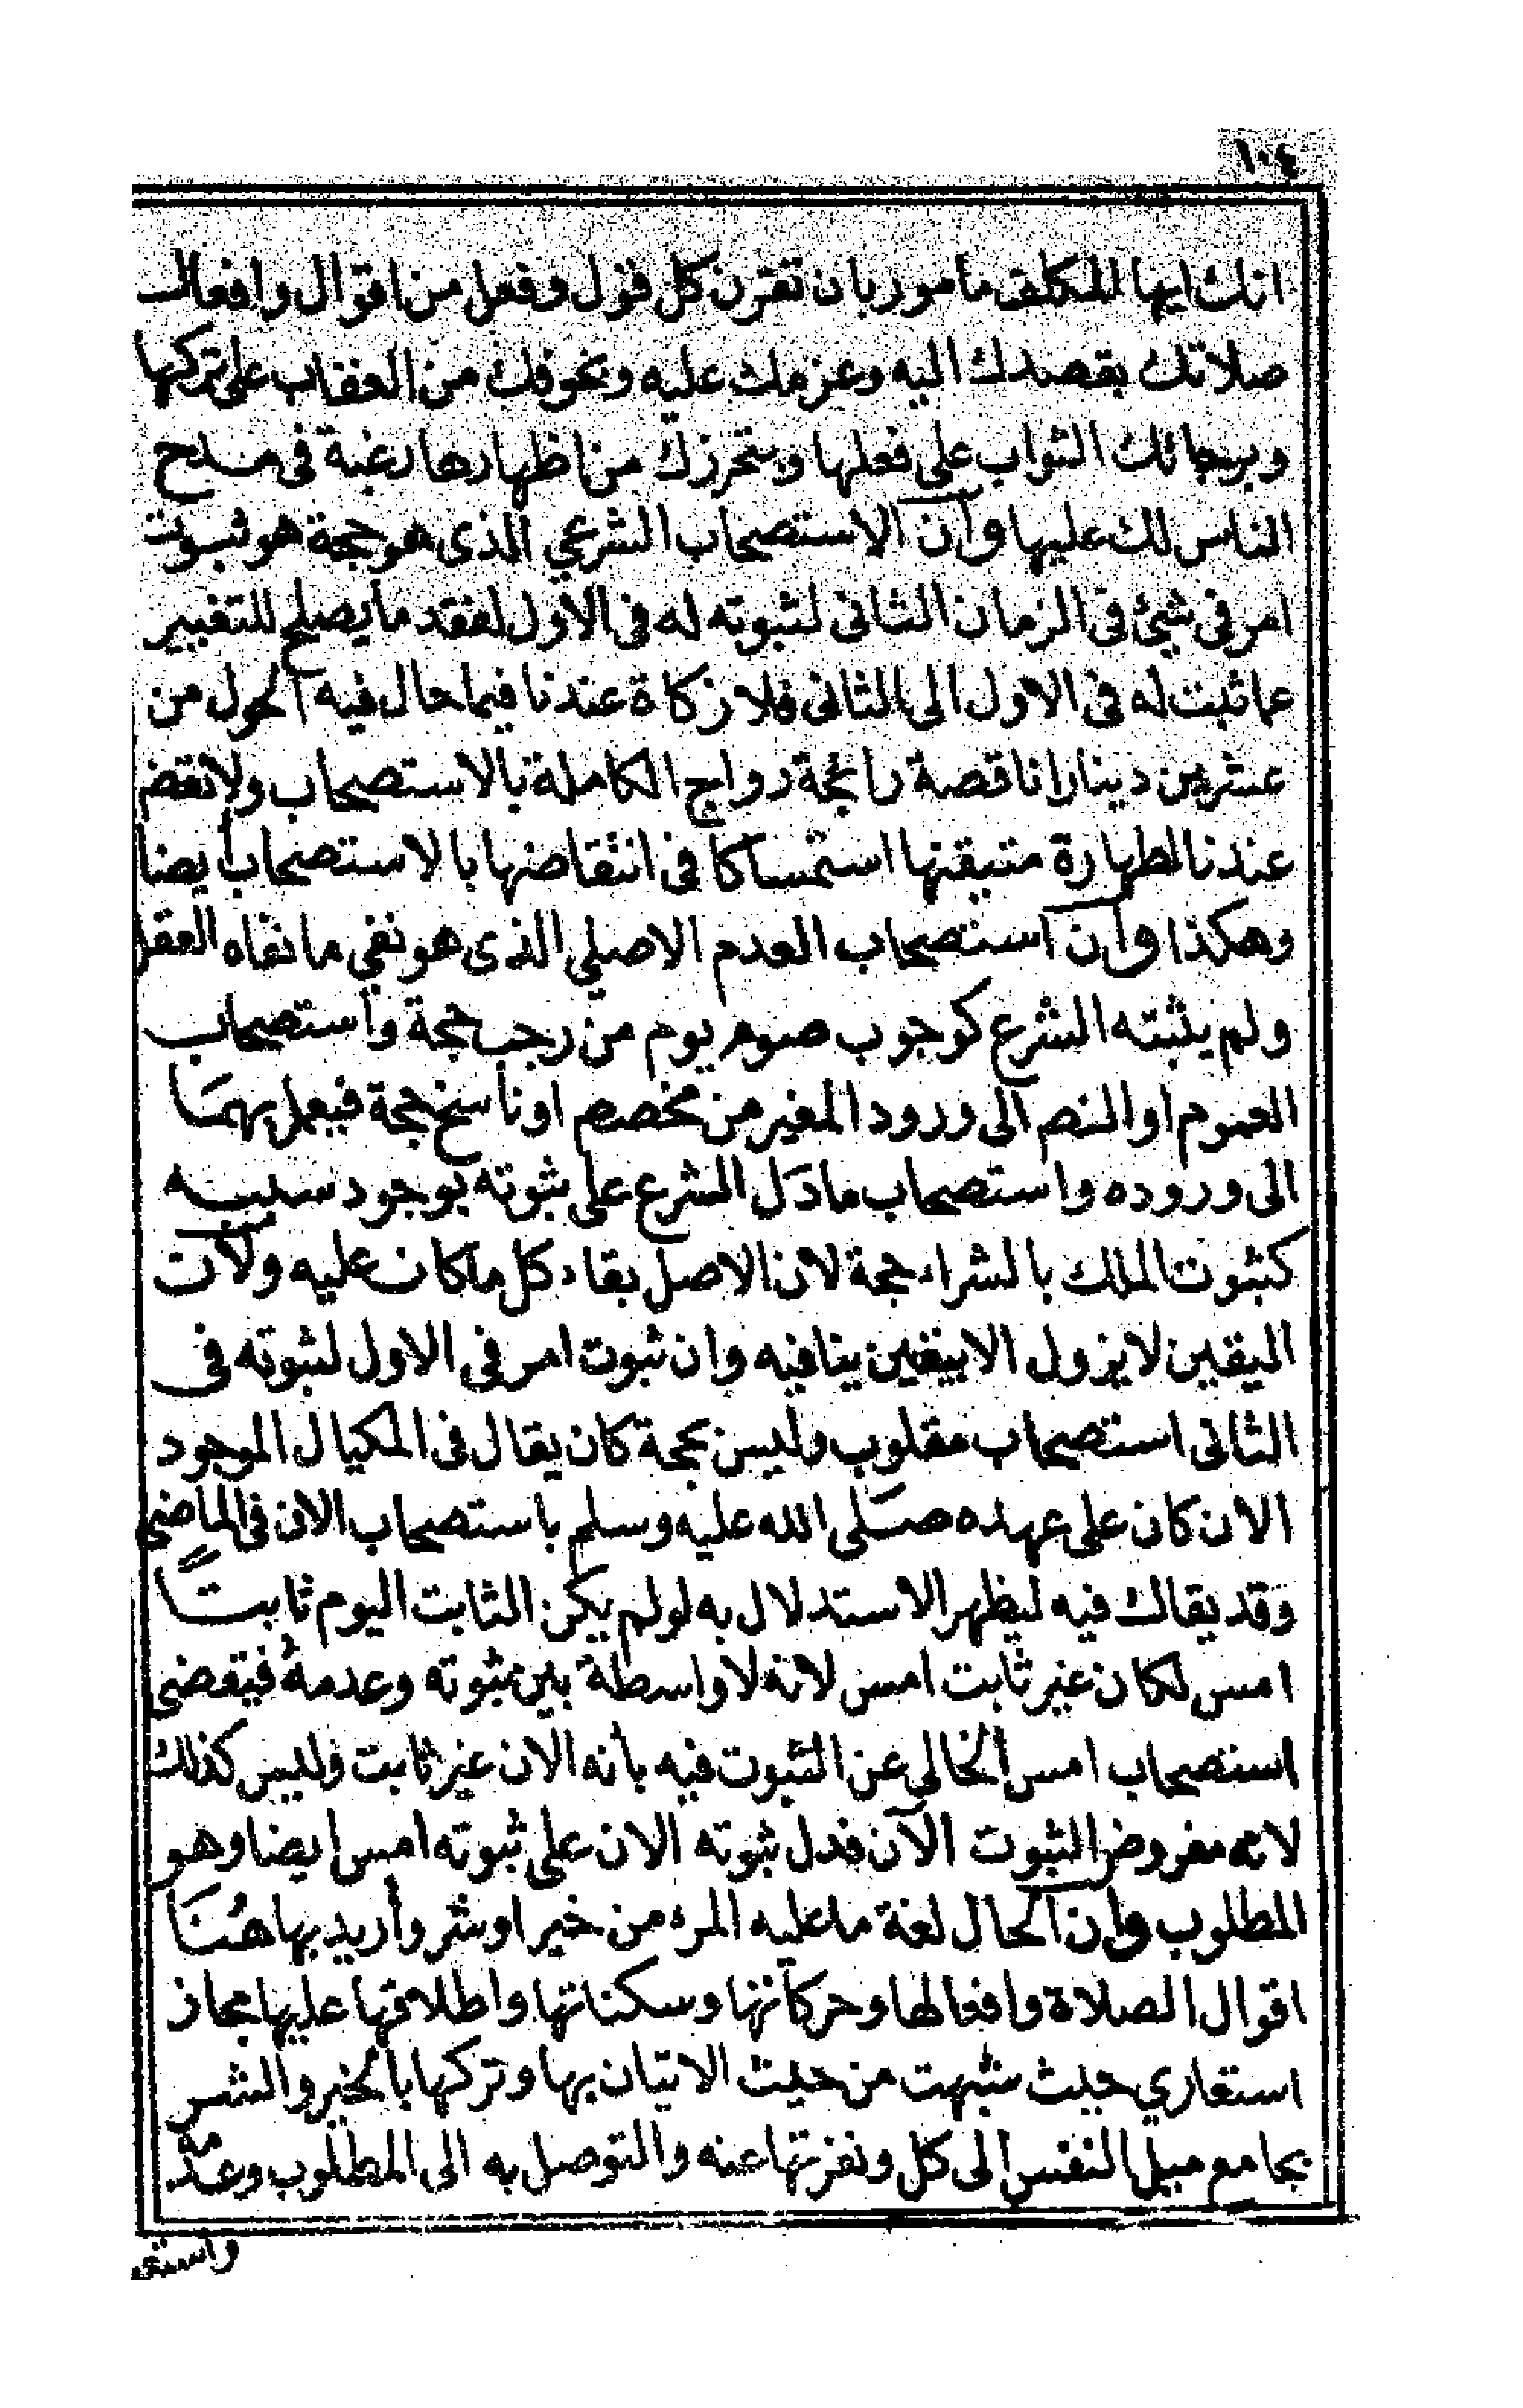 ١٠٤
انك ايها المكلف مأمور بان تقرن كل قول وفعل من اقوال وافعال
صلاتك بقصدك اليه وعزمك عليه وبخوفك من العقاب على تركها
وبرجائك الثواب على فعلها وبتحرزك من اظهارها رغبة فى مدح
الناس لك عليها وأن الاستصحاب الشرعي الذى هو حجة هو ثبوت
امر فى شئ فى الزمان الثانى لثبوته له فى الاول لفقد ما يصلح للتغيير
عما ثبت له فى الاول الى الثانى فلا زكاة عندنا فيما حال فيه الحول من
عشرين دينارا ناقصة رائجة رواج الكاملة بالاستصحاب ولا نقض
عندنا لطهارة متيقنها استمساكا فى انتقاضها بالاستصحاب أيضا
وهكذا وأن استصحاب العدم الاصلي الذى هو نفي ما نفاه العقل
ولم يثبته الشرع كوجوب صوم يوم من رجب حجة واستصحاب
العموم او النص الى ورود المغير من مخصص او ناسخ حجة فيعمل بهما
الى وروده واستصحاب ما دل الشرع على ثبوته بوجود سببه
كثبوت الملك بالشراء حجة لان الاصل بقاء كل ما كان عليه ولأن
اليقين لا يزول الا بيقين ينافيه وان ثبوت امر فى الاول لثبوته فى
الثانى استصحاب مقلوب وليس بحجة كان يقال فى المكيال الموجود
الان كان على عهده صلى الله عليه وسلم باستصحاب الان فى الماضى
وقد يقال فيه ليظهر الاستدلال به لو لم يكن الثابت اليوم ثابتًا
امس لكان غير ثابت امس لانه لا واسطة بين ثبوته وعدمه فيقضى
استصحاب امس الخالي عن الثبوت فيه بأنه الان غير ثابت وليس كذلك
لانه مفروض الثبوت الآن فدل ثبوته الان على ثبوته امس ايضا وهو
المطلوب وأن الحال لغة ما عليه المرء من خير او شر وأريد بها هُنَا
اقوال الصلاة وافعالها وحركاتها وسكناتها واطلاقها عليها مجاز
استعاري حيث شبهت من حيث الاتيان بها وتركها بالخير والشر
بجامع ميل النفس الى كل ونفرتها عنه والتوصل به الى المطلوب وعدمه
واستعـ